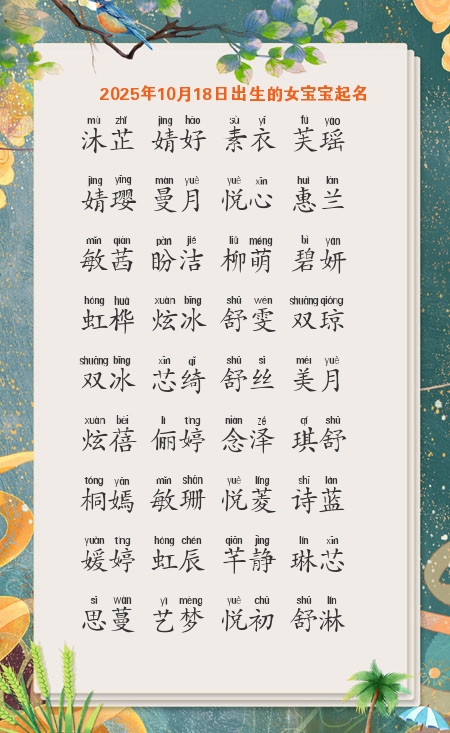 2025年10月18日出生的女宝宝起名
mù zhǐ jìng hǎo sù yī fú yáo
沐芷 婧好 素衣 芙瑶
jìng yīng màn yuè yuè xīn huì lán
婧璎 曼月 悦心 惠兰
mǐn qiàn pàn jié liǔ méng bì yán
敏茜 盼洁 柳萌 碧妍
hóng huà xuàn bīng shū wén shuāng qióng
虹桦 炫冰 舒雯 双琼
shuāng bīng xīn qǐ shū sī měi yuè
双冰 芯绮 舒丝 美月
xuàn bèi lì tíng niàn zé qí shū
炫蓓 俪婷 念泽 琪舒
tóng yān mǐn shān yuè líng shī lán
桐嫣 敏珊 悦菱 诗蓝
yuàn tíng hóng chén qiān jìng lín xīn
媛婷 虹辰 芊静 琳芯
sī wàn yì mèng yuè chū shū lín
思蔓 艺梦 悦初 舒淋